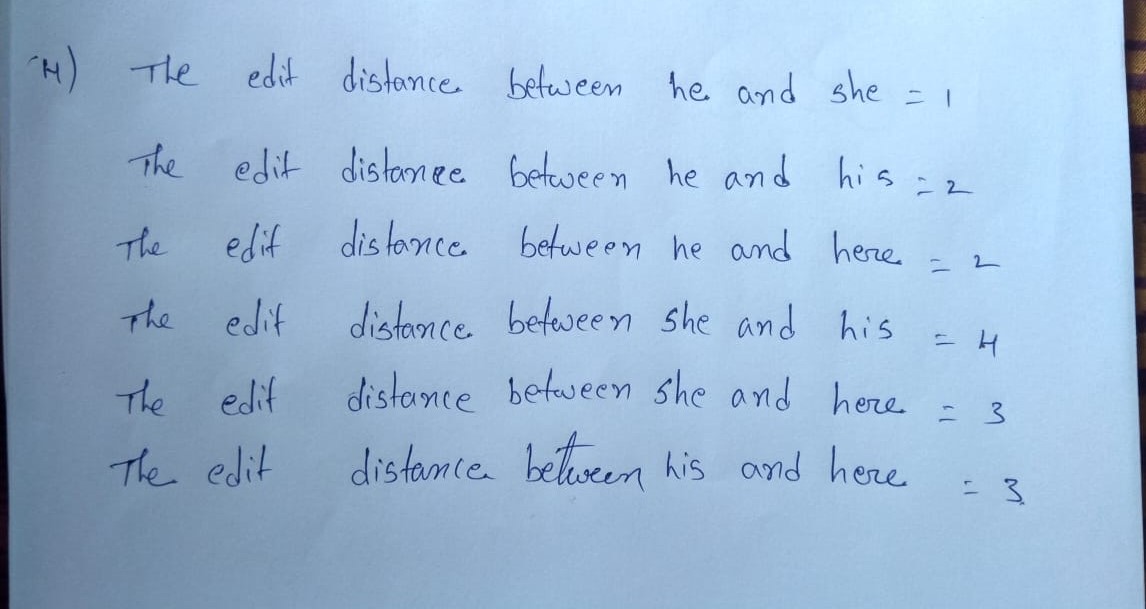 4) The edit distance between he and she = 1
The edit distance between he and his = 2
The edit distance between he and here = 2
The edit distance between she and his = 4
The edit distance between she and here = 3
The edit distance between his and here = 3